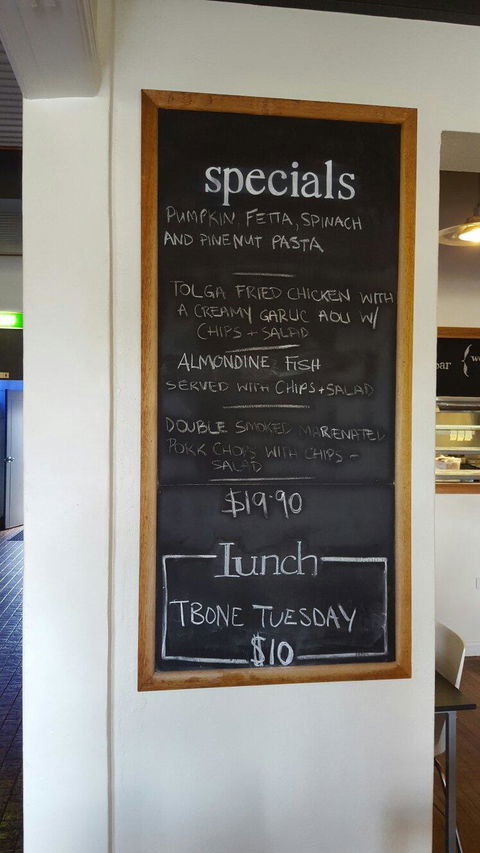 specials
PUMPKIN FETTA, SPINACH
AND PINENUT PASTA
TOLGA FRIED CHICKEN WITH
A CREAMY GARLIC AOLI W/
CHIPS + SALAD
ALMONDINE FISH
SERVED WITH CHIPS + SALAD
DOUBLE SMOKED MARENATED
PORK CHOPS WITH CHIPS -
SALAD
$19.90
lunch
TBONE TUESDAY
$10
bar